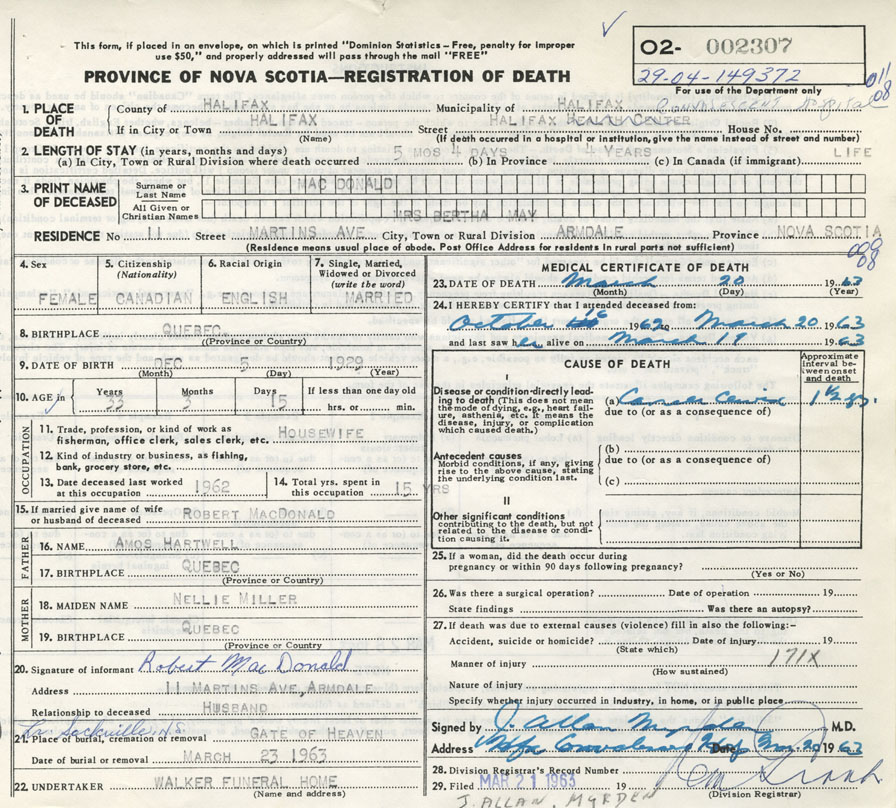 This form, if placed in an envelope, on which is printed "Dominion Statistics - Free, penalty for improper
use $50," and properly addressed will pass through the mail "FREE"
PROVINCE OF NOVA SCOTIA—REGISTRATION OF DEATH
02- 002307
29-04-149372
For use of the Department only
011
08
1. PLACE OF DEATH
County of HALIFAX Municipality of HALIFAX CONVALESCENT HOSPITAL
If in City or Town HALIFAX Street HALIFAX HEALTH CENTER House No.
(Name) (If death occurred in a hospital or institution, give the name instead of street and number)
2. LENGTH OF STAY (in years, months and days)
(a) In City, Town or Rural Division where death occurred 5 MOS 4 DAYS (b) In Province 4 YEARS (c) In Canada (if immigrant) LIFE
3. PRINT NAME OF DECEASED
Surname or Last Name MAC DONALD
All Given or Christian Names MRS BERTHA MAY
RESIDENCE No 11 Street MARTINS AVE City, Town or Rural Division ARMDALE Province NOVA SCOTIA
(Residence means usual place of abode. Post Office Address for residents in rural parts not sufficient)
009
08
4. Sex
FEMALE
5. Citizenship (Nationality)
CANADIAN
6. Racial Origin
ENGLISH
7. Single, Married, Widowed or Divorced (write the word)
MARRIED
8. BIRTHPLACE QUEBEC
(Province or Country)
9. DATE OF BIRTH DEC 5 1929
(Month) (Day) (Year)
10. AGE in Years 33 Months 3 Days 15 If less than one day old hrs. or min.
OCCUPATION
11. Trade, profession, or kind of work as fisherman, office clerk, sales clerk, etc. HOUSEWIFE
12. Kind of industry or business, as fishing, bank, grocery store, etc.
13. Date deceased last worked at this occupation 1962
14. Total yrs. spent in this occupation 15 YRS
15. If married give name of wife or husband of deceased ROBERT MACDONALD
FATHER
16. NAME AMOS HARTWELL
17. BIRTHPLACE QUEBEC
(Province or Country)
MOTHER
18. MAIDEN NAME NELLIE MILLER
19. BIRTHPLACE QUEBEC
(Province or Country)
20. Signature of informant Robert MacDonald
Address 11 MARTINS AVE, ARMDALE
Relationship to deceased HUSBAND
Lr. Sackville, N.S.
21. Place of burial, cremation or removal GATE OF HEAVEN
Date of burial or removal MARCH 23 1963
22. UNDERTAKER WALKER FUNERAL HOME
(Name and address)
MEDICAL CERTIFICATE OF DEATH
23. DATE OF DEATH March 20 1963
(Month) (Day) (Year)
24. I HEREBY CERTIFY that I attended deceased from:
October 16 1962 to March 20 1963
and last saw her alive on March 19 1963
CAUSE OF DEATH
Approximate interval between onset and death
I
Disease or condition directly leading to death (This does not mean the mode of dying, e.g., heart failure, asthenia, etc. It means the disease, injury, or complication which caused death.)
(a) Cancer Cervix 1½ yrs.
due to (or as a consequence of)
Antecedent causes
Morbid conditions, if any, giving rise to the above cause, stating the underlying condition last.
(b)
due to (or as a consequence of)
(c)
II
Other significant conditions
contributing to the death, but not related to the disease or condition causing it.
25. If a woman, did the death occur during
pregnancy or within 90 days following pregnancy?
(Yes or No)
26. Was there a surgical operation? Date of operation 19
State findings Was there an autopsy?
27. If death was due to external causes (violence) fill in also the following:-
Accident, suicide or homicide? Date of injury 19
(State which)
171X
Manner of injury
(How sustained)
Nature of injury
Specify whether injury occurred in industry, in home, or in public place
Signed by J. Allan Myrden M.D.
Address Hfx Convalescent Hosp Date Mar 20 1963
28. Division Registrar's Record Number
29. Filed MAR 21 1963 19
(Division Registrar)
J. ALLAN, MYRDEN